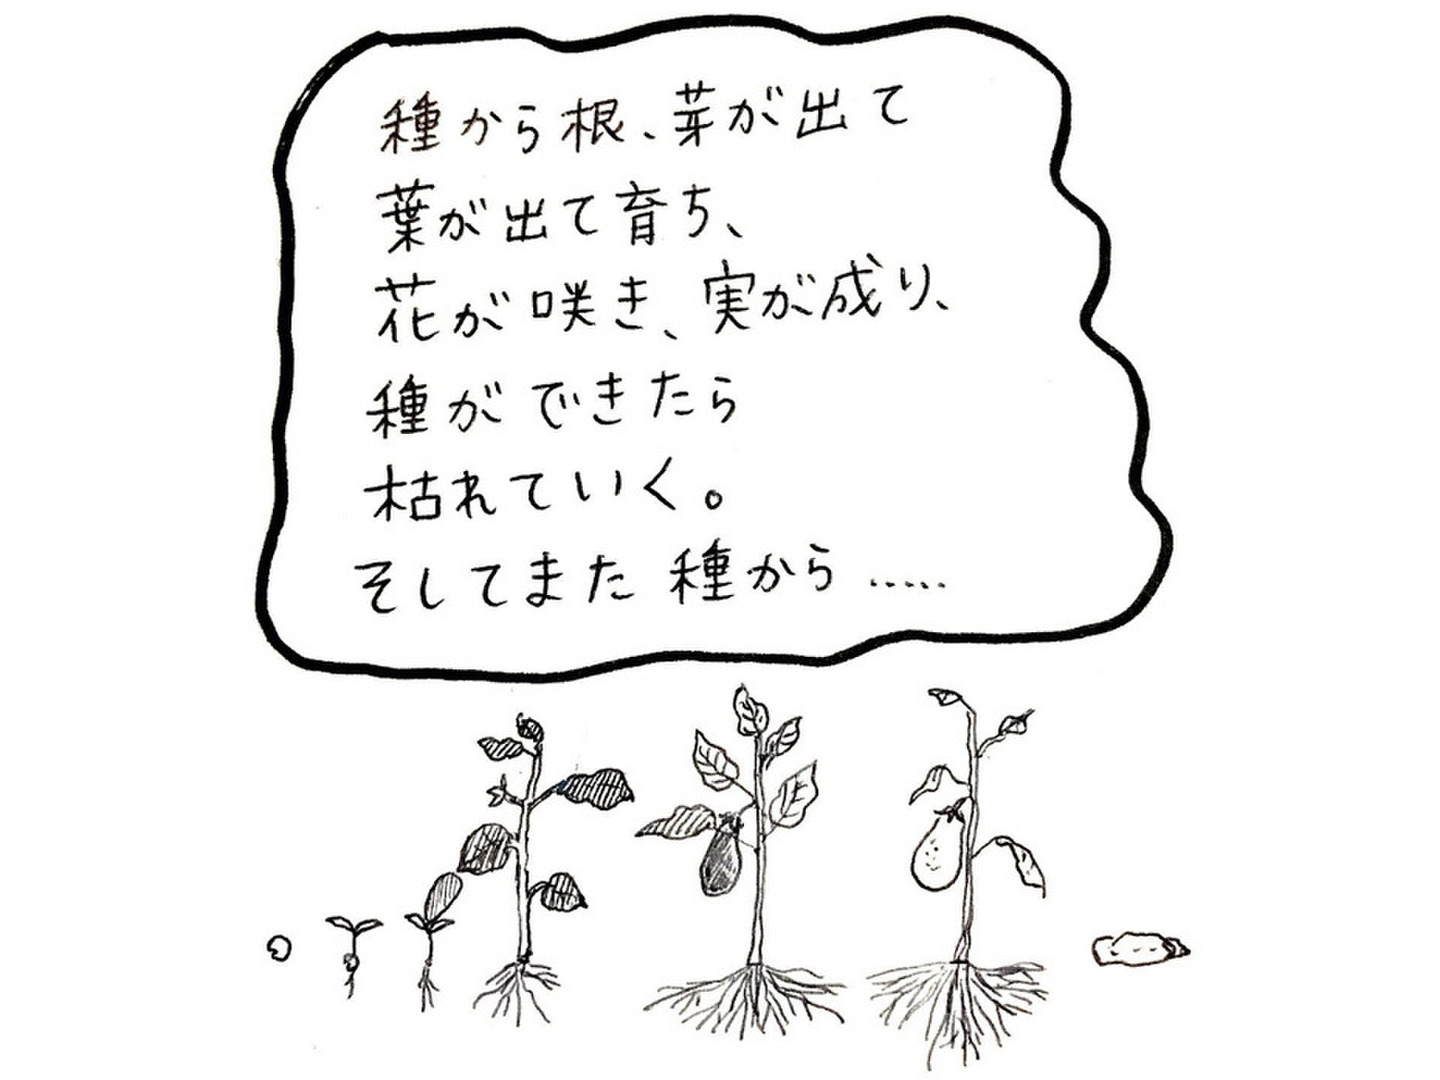 種から根、芽が出て
葉が出て育ち、
花が咲き、実が成り、
種ができたら
枯れていく。
そしてまた種から……